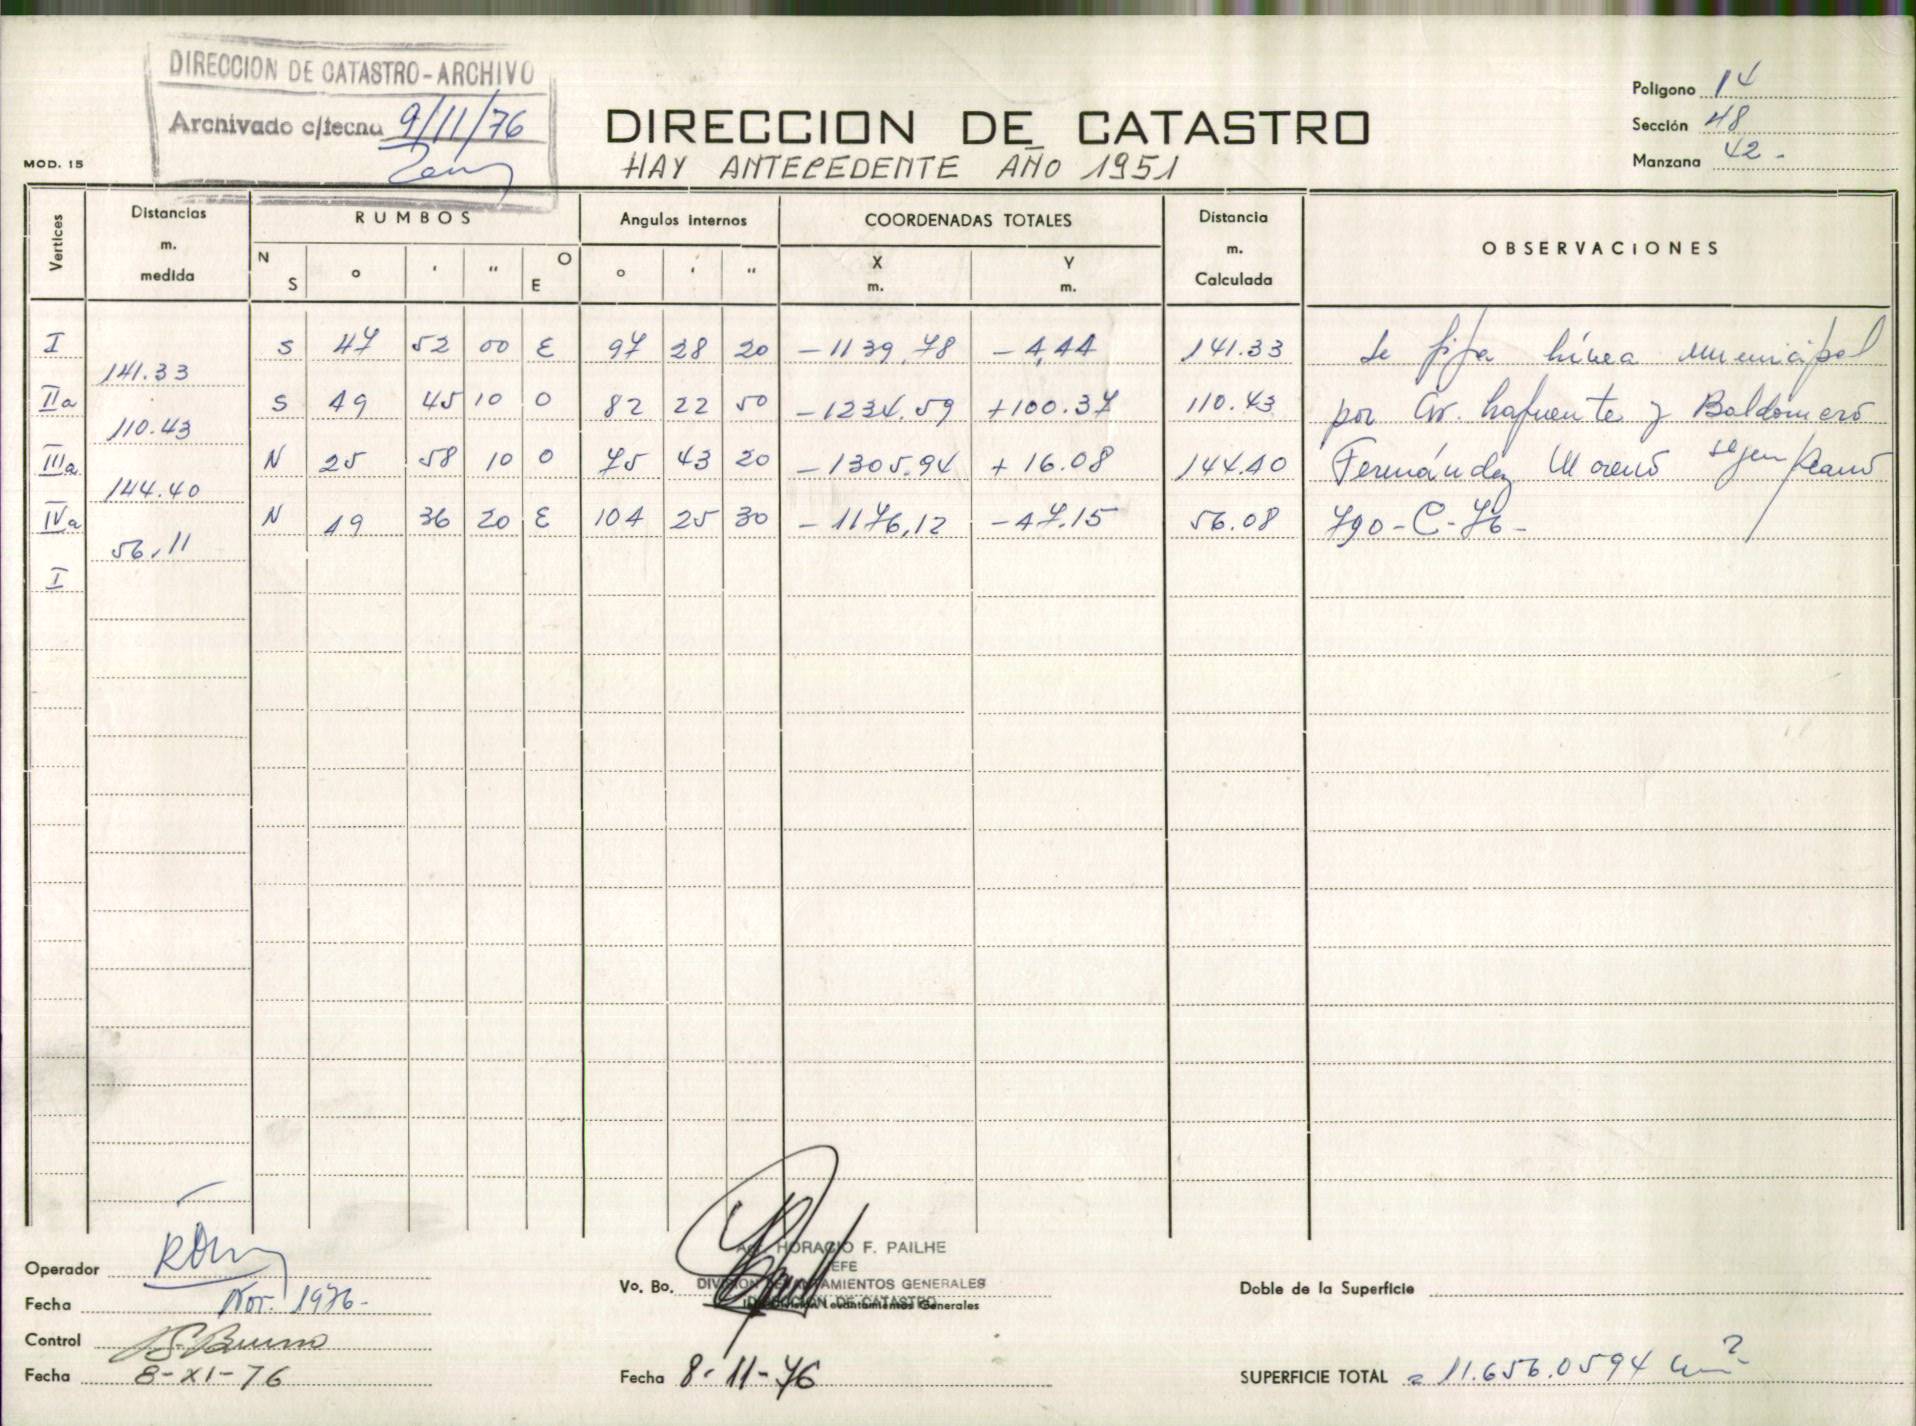 DIRECCION DE CATASTRO-ARCHIVO
Archivado c/fecha 9/11/76
MOD. 15
DIRECCION DE CATASTRO
HAY ANTECEDENTE AÑO 1951
Polígono 14
Sección 48
Manzana 42 -
Vertices
Distancias m. medida
RUMBOS
N S ° ' " O E
Angulos internos
° ' "
COORDENADAS TOTALES
X m. Y m.
Distancia m. Calculada
OBSERVACIONES
I S 47 52 00 E 97 28 20 -1139.78 -4,44 141.33 Se fija línea municipal
141.33
IIa S 49 45 10 O 82 22 50 -1234.59 +100.37 110.43 por Av. Lafuente y Baldomero
110.43
IIIa N 25 58 10 O 75 43 20 -1305.94 +16.08 144.40 Fernández Moreno segun plano
144.40
IVa N 49 36 20 E 104 25 30 -1176,12 -47.15 56.08 790-C-76-
56.11
I
Operador
Fecha Nov. 1976-
Control
Fecha 8-XI-76
Vo. Bo.
HORACIO F. PAILHE
JEFE
DIVISION LEVANTAMIENTOS GENERALES
DIRECCION DE CATASTRO
División Levantamientos Generales
Fecha 8-11-76
Doble de la Superficie
SUPERFICIE TOTAL = 11.656.0594 m2